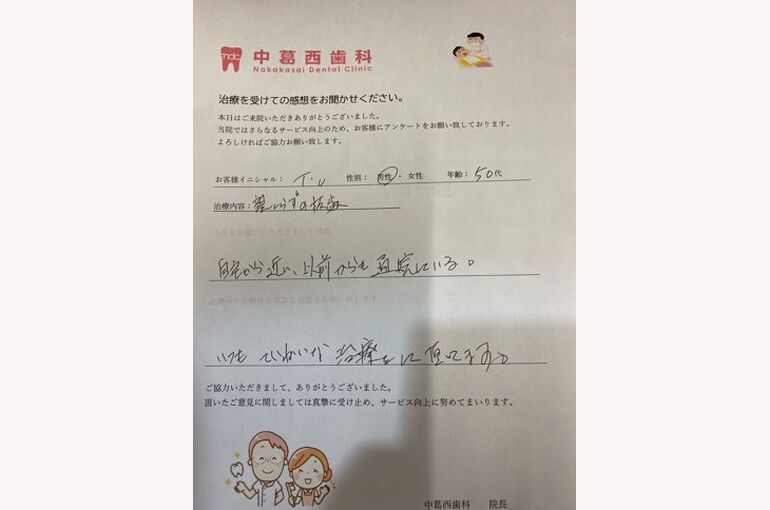 mdc
中葛西歯科
Nakakasai Dental Clinic
治療を受けての感想をお聞かせください。
本日はご来院いただきありがとうございました。
当院ではさらなるサービス向上のため、お客様にアンケートをお願い致しております。
よろしければご協力お願い致します。
お客様イニシャル： T.U 性別： 男性・女性 年齢：50代
治療内容：親しらずの抜歯
当院をお選びいただきました理由
自宅から近い、以前からも通院している。
治療中や治療後の率直な感想をお願い致します
いつもていねいな治療を
ご協力いただきまして、ありがとうございました。
頂いたご意見に関しましては真摯に受け止め、サービス向上に努めてまいります。
中葛西歯科 院長